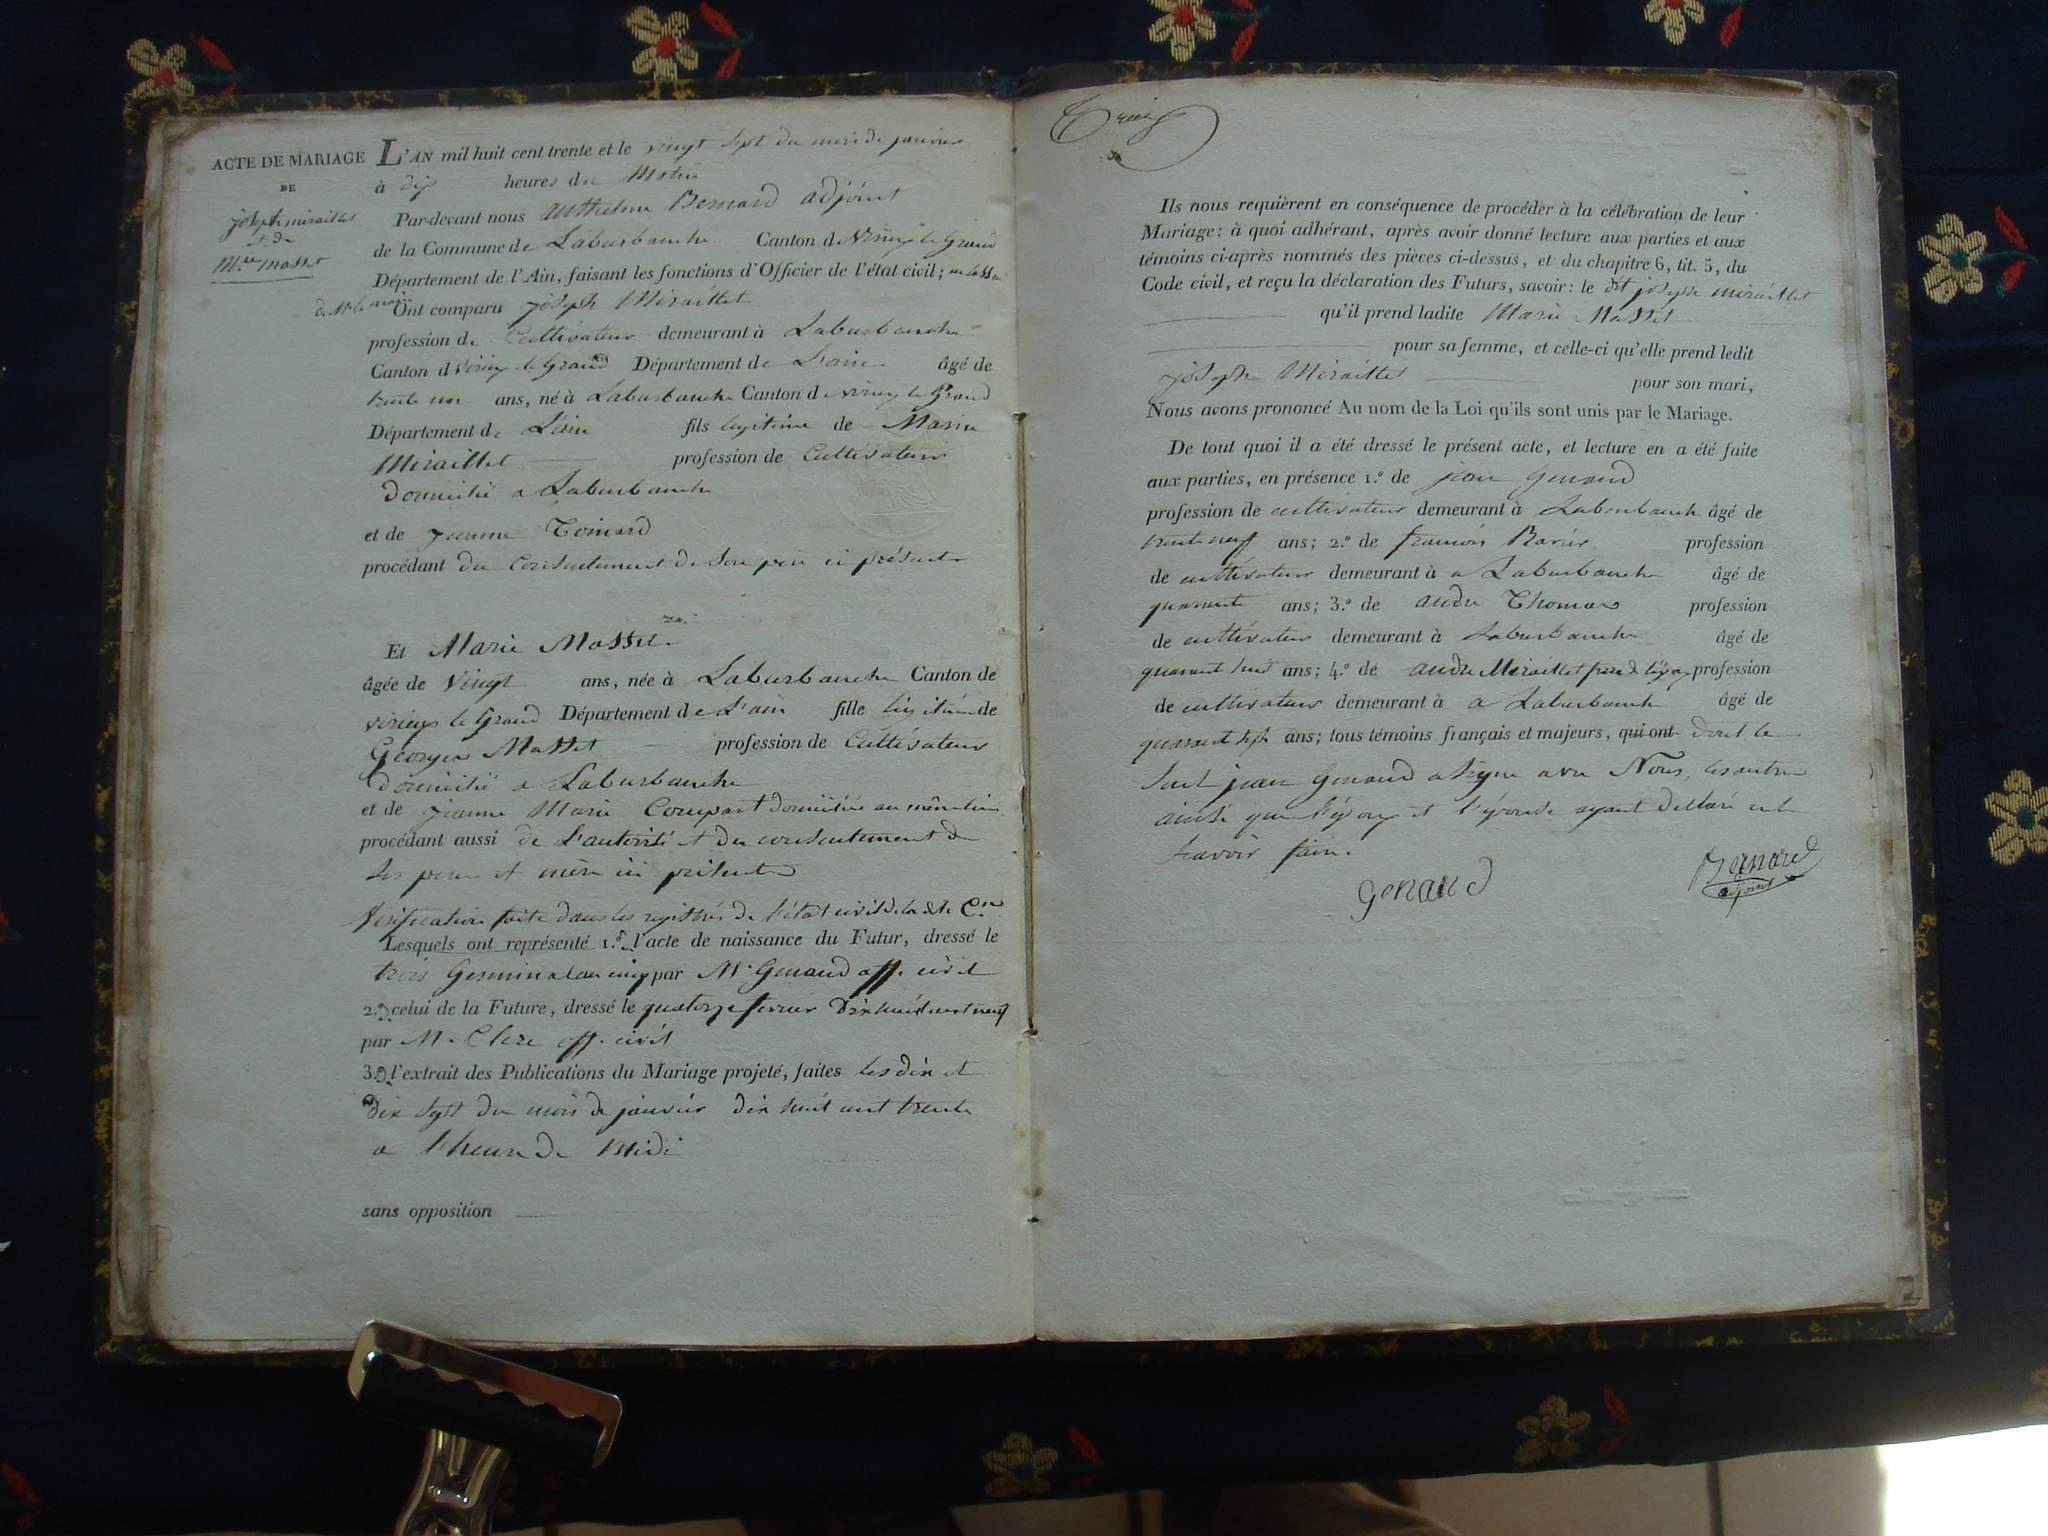 ACTE DE MARIAGE
DE
joseph miraillet
et de
M.ie Masset
L'AN mil huit cent trente et le vingt sept du mois de janvier
à dix heures du Matin
Par-devant nous Anthelme Bernard adjoint
de la Commune de Laburbanche Canton de Virieu le Grand
Département de l'Ain, faisant les fonctions d'Officier de l'état civil;
de Mr le maire
Ont comparu joseph Miraillet
profession de Cultivateur demeurant à Laburbanche
Canton d Virieu le Grand Département de L'ain âgé de
trente un ans, né à Laburbanche Canton de virieu le Grand
Département de L'ain fils legitime de Marin
Miraillet profession de Cultivateur
domicilié a Laburbanche
et de jeanne Tomard
procédant du Consentement de Son pere ci présent
Et Marie Masset
âgée de Vingt ans, née à Laburbanche Canton de
virieu le Grand Département de L'ain fille legitime de
Georges Masset profession de Cultivateur
domicilié a Laburbanche
et de jeanne Marie Compart domiciliée au même lieu
procédant aussi de L'autorité et du consentement de
Ses pere et mère ici présents
Verification faite dans les registres de l'état civil de la dte C.ne
Lesquels ont représenté 1.º l'acte de naissance du Futur, dressé le
trois Germinal an cinq par Mr Genaud off. civil
2.º celui de la Future, dressé le quatorze fevrier dix huit cent neuf
par M. Clerc off. civil
3.º l'extrait des Publications du Mariage projeté, faites les dix et
dix sept du mois de janvier dix huit cent trente
a l'heure de Midi
sans opposition
Ils nous requièrent en conséquence de procéder à la célébration de leur
Mariage: à quoi adhérant, après avoir donné lecture aux parties et aux
témoins ci-après nommés des pièces ci-dessus, et du chapitre 6, tit. 5, du
Code civil, et reçu la déclaration des Futurs, savoir: le dit joseph miraillet
qu'il prend ladite Marie Masset
pour sa femme, et celle-ci qu'elle prend ledit
joseph Miraillet pour son mari,
Nous avons prononcé Au nom de la Loi qu'ils sont unis par le Mariage.
De tout quoi il a été dressé le présent acte, et lecture en a été faite
aux parties, en présence 1.º de jean Genaud
profession de cultivateur demeurant à Laburbanche âgé de
trente neuf ans; 2.º de francois Ravier profession
de cultivateur demeurant à a Laburbanche âgé de
quarante ans; 3.º de andré Thomas profession
de cultivateur demeurant à Laburbanche âgé de
quarant huit ans; 4.º de andre Miraillet frere de l'époux profession
de cultivateur demeurant à a Laburbanche âgé de
quarant sept ans; tous témoins français et majeurs, qui ont dont le
Seul jean Genaud a Signé avec Nous, les autres
ainsi que l'époux et l'épouse ayant declaré ne le
Savoir faire.
Genaud
Bernard
adjoint